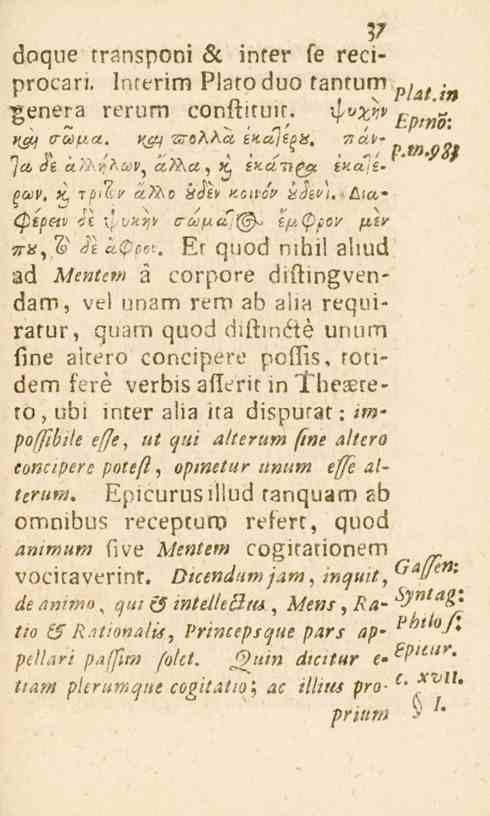 37
doque transponi & inter ſe reci-
procari. Interim Plato duo tantum
genera rerum conſtituit. ψυχὴν
καὶ σῶμα. καὶ πολλὰ ἑκατέρȣ. πάν-
τα δὲ ἀλλήλων, ἄλλα, κ̀ ἑκάτερα ἑκατέ-
ρων. κ̀ τρίτον ἄλλο ȣ̓δὲν κοινόν ȣ̓δενί. Δια-
Φέρειν δὲ ψυχὴν σώματ⊙ ἔμφρον μέν
πȣ, τὸ δὲ ἄφρον. Et quod nihil aliud
ad Mentem â corpore diſtingven-
dam, vel unam rem ab alia requi-
ratur, quam quod diſtinctè unum
ſine altero concipere poſſis, toti-
dem ferè verbis aſſerit in Theæte-
to, ubi inter alia ita diſputat: im-
poſſibile eſſe, ut qui alterum ſine altero
concipere poteſt, opinetur unum eſſe al-
terum. Epicurus illud tanquam ab
omnibus receptum refert, quod
animum ſive Mentem cogitationem
vocitaverint. Dicendum jam, inquit,
de animo, qui & intellectus, Mens, Ra-
tio & Rationalis, Princepsque pars ap-
pellari paſſim ſolet. Quin dicitur e-
tiam plerumque cogitatio; ac illius pro-
prium
Plat. in
Epinō:
p.m.983
Gaſſen:
Syntag:
Philoſ:
Epicur.
c. xvii.
§ I.